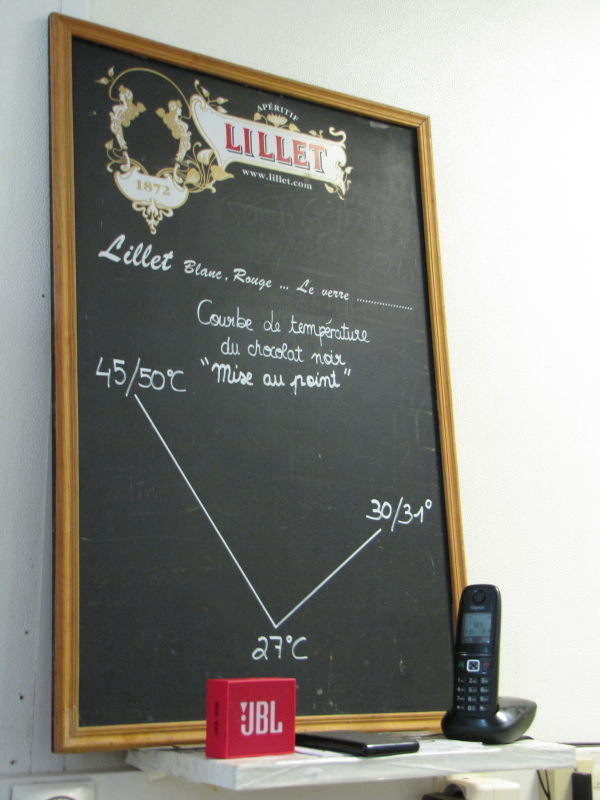 APÉRITIF
LILLET
www.lillet.com
1872
Lillet Blanc, Rouge ... Le verre ..................
Courbe de température
du chocolat noir
"Mise au point"
45/50°C
30/31°
27°C
JBL
Gigaset